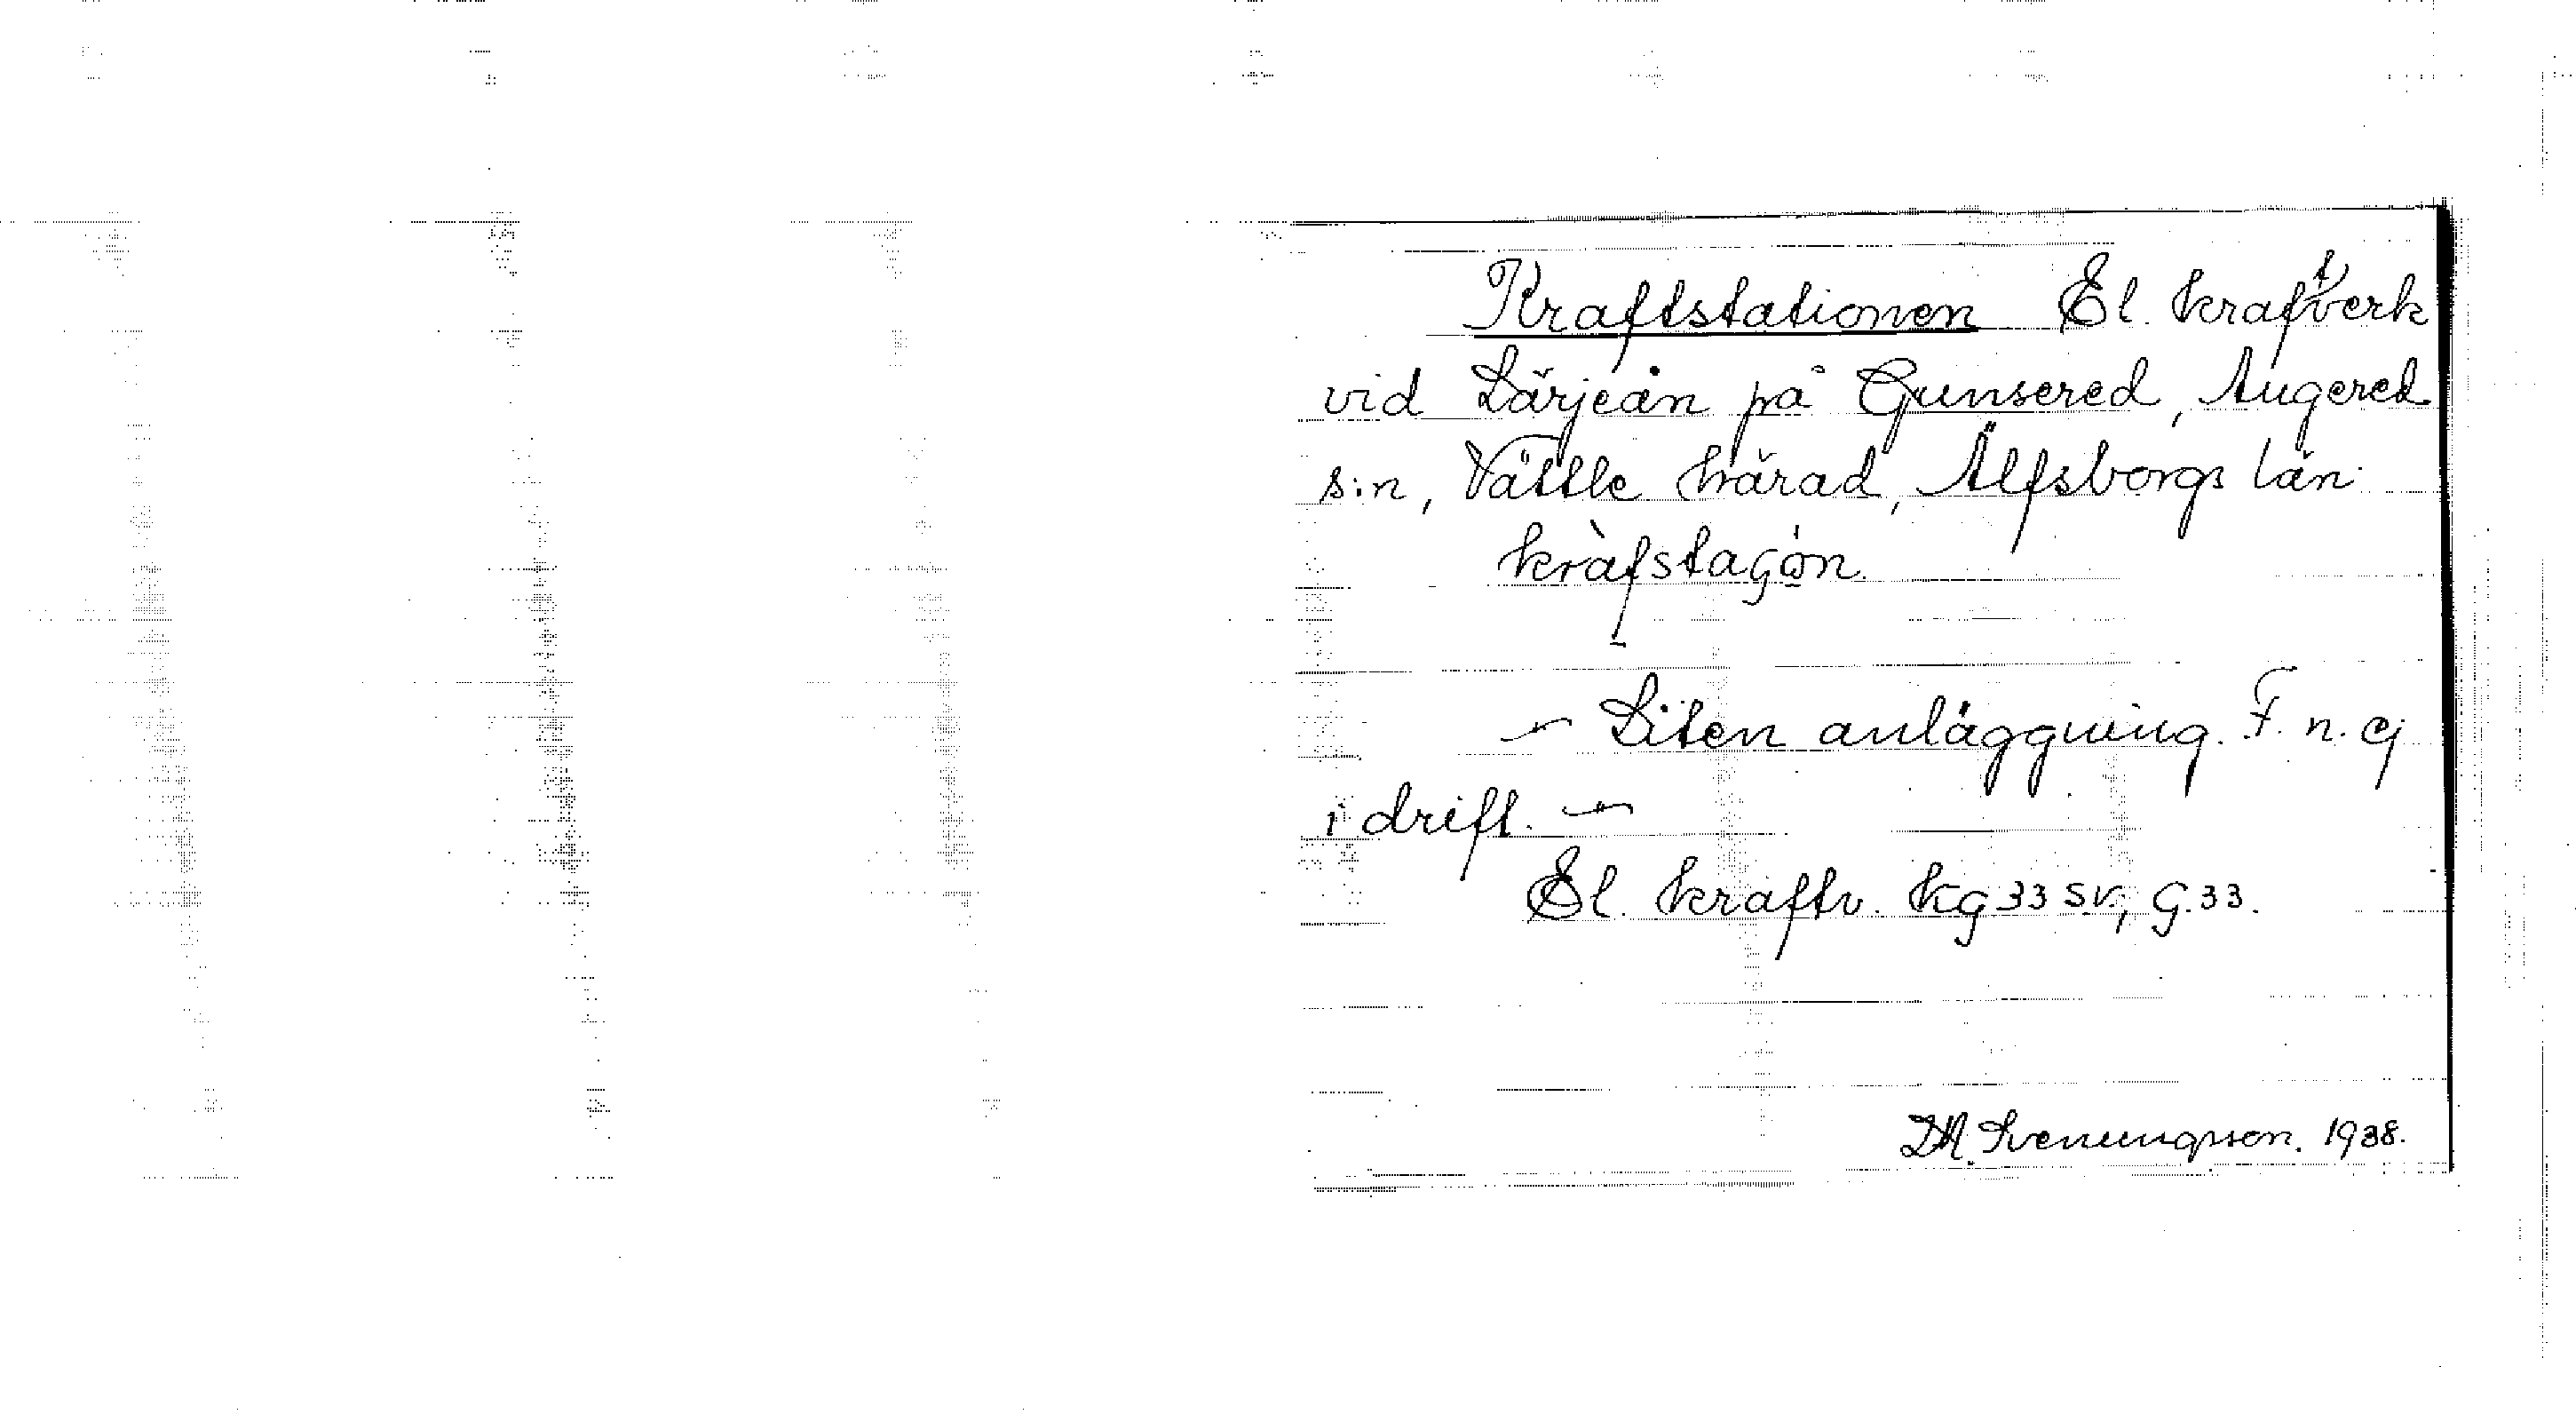 Kraftstationen El. kraftverk
vid Lärjeån på Gunsered, Angered
s:n, Vättle härad, Älfsborgs län.
kràfstaçón.
— Liten anläggning. F. n. ej
i drift. —
El. kraftv. Kg 33 SV, G. 33.
1938.